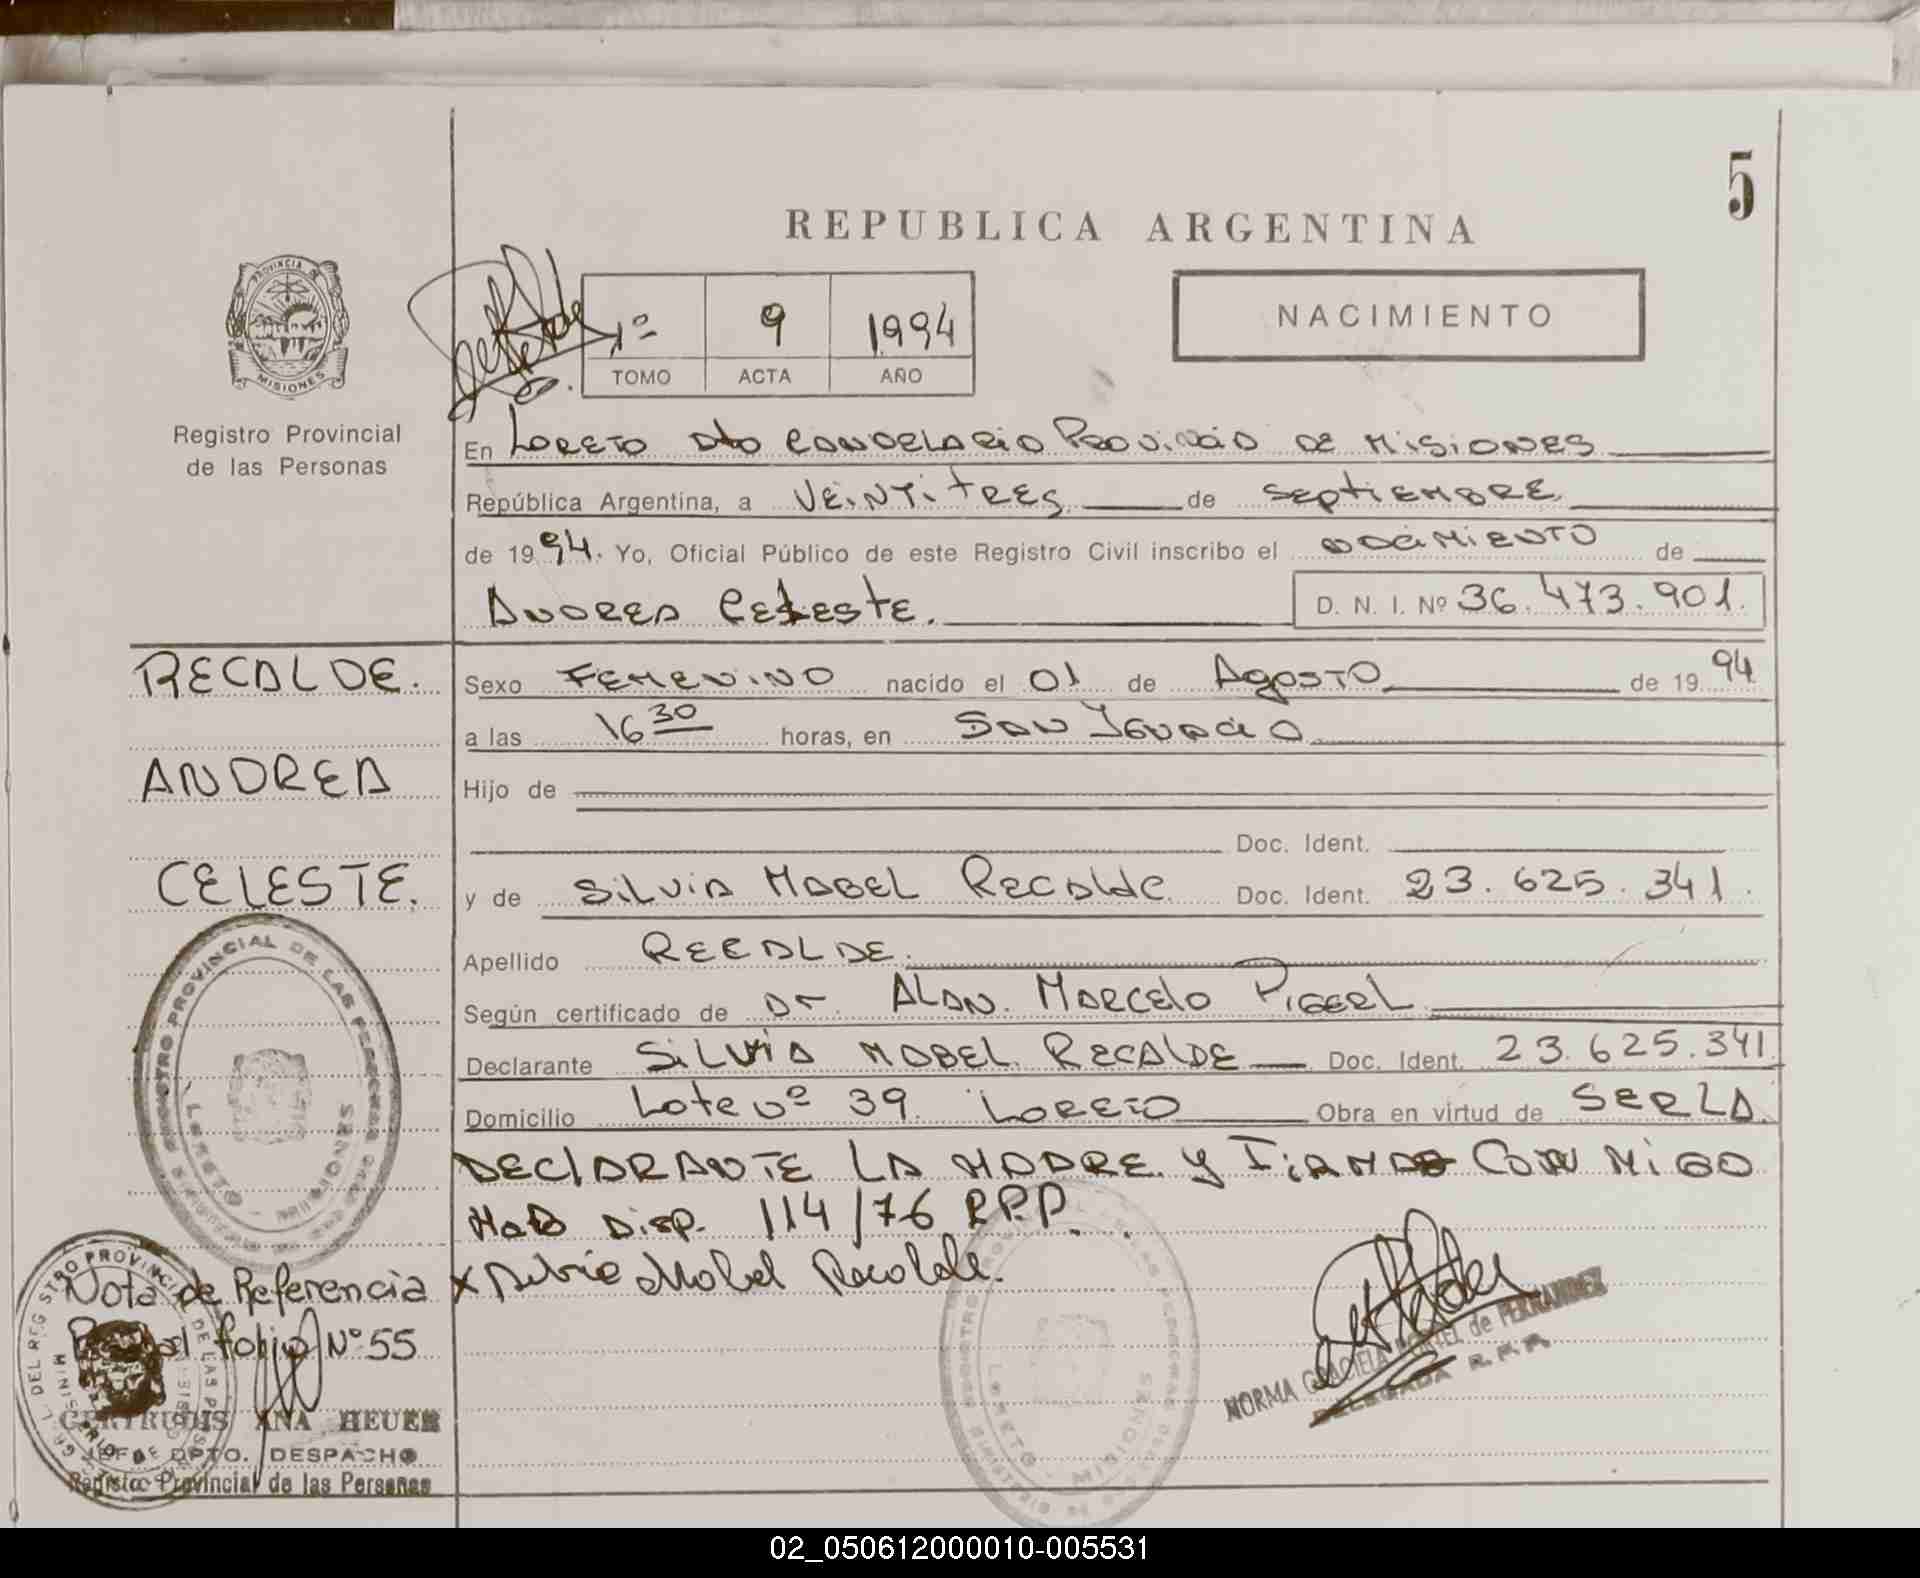 5
REPUBLICA ARGENTINA
PROVINCIA DE
MISIONES
Registro Provincial
de las Personas
1º 9 1994
TOMO ACTA AÑO
NACIMIENTO
En LORETO Dto CANDELARIA PROVINCIA DE MISIONES
República Argentina, a VEINTITRES de SEPTIEMBRE
de 1994. Yo, Oficial Público de este Registro Civil inscribo el NACIMIENTO de
ANDREA CELESTE. D. N. I. Nº 36.473.901.
RECALDE.
ANDREA
CELESTE.
Sexo FEMENINO nacido el 01 de AGOSTO de 1994
a las 16 30 horas, en SAN IGNACIO
Hijo de
Doc. Ident.
y de SILVIA MABEL RECALDE Doc. Ident. 23.625.341.
Apellido RECALDE.
Según certificado de Dr. ALAN. MARCELO PIGERL
Declarante SILVIA MABEL RECALDE Doc. Ident. 23.625.341
Domicilio Lote Nº 39. LORETO Obra en virtud de SER LA
DECLARANTE LA MADRE. Y FIRMA CONMIGO
Disp. 114/76 R.P.P.
x Silvia Mabel Recalde.
REGISTRO PROVINCIAL DE LAS PERSONAS
LORETO - MISIONES
Nota de Referencia
folio Nº 55
GERTRUDIS ANA HEUER
JEFE DPTO. DESPACHO
Registro Provincial de las Personas
LORETO - MISIONES
NORMA GRACIELA de FERNANDEZ
DELEGADA R.P.P.
02_050612000010-005531